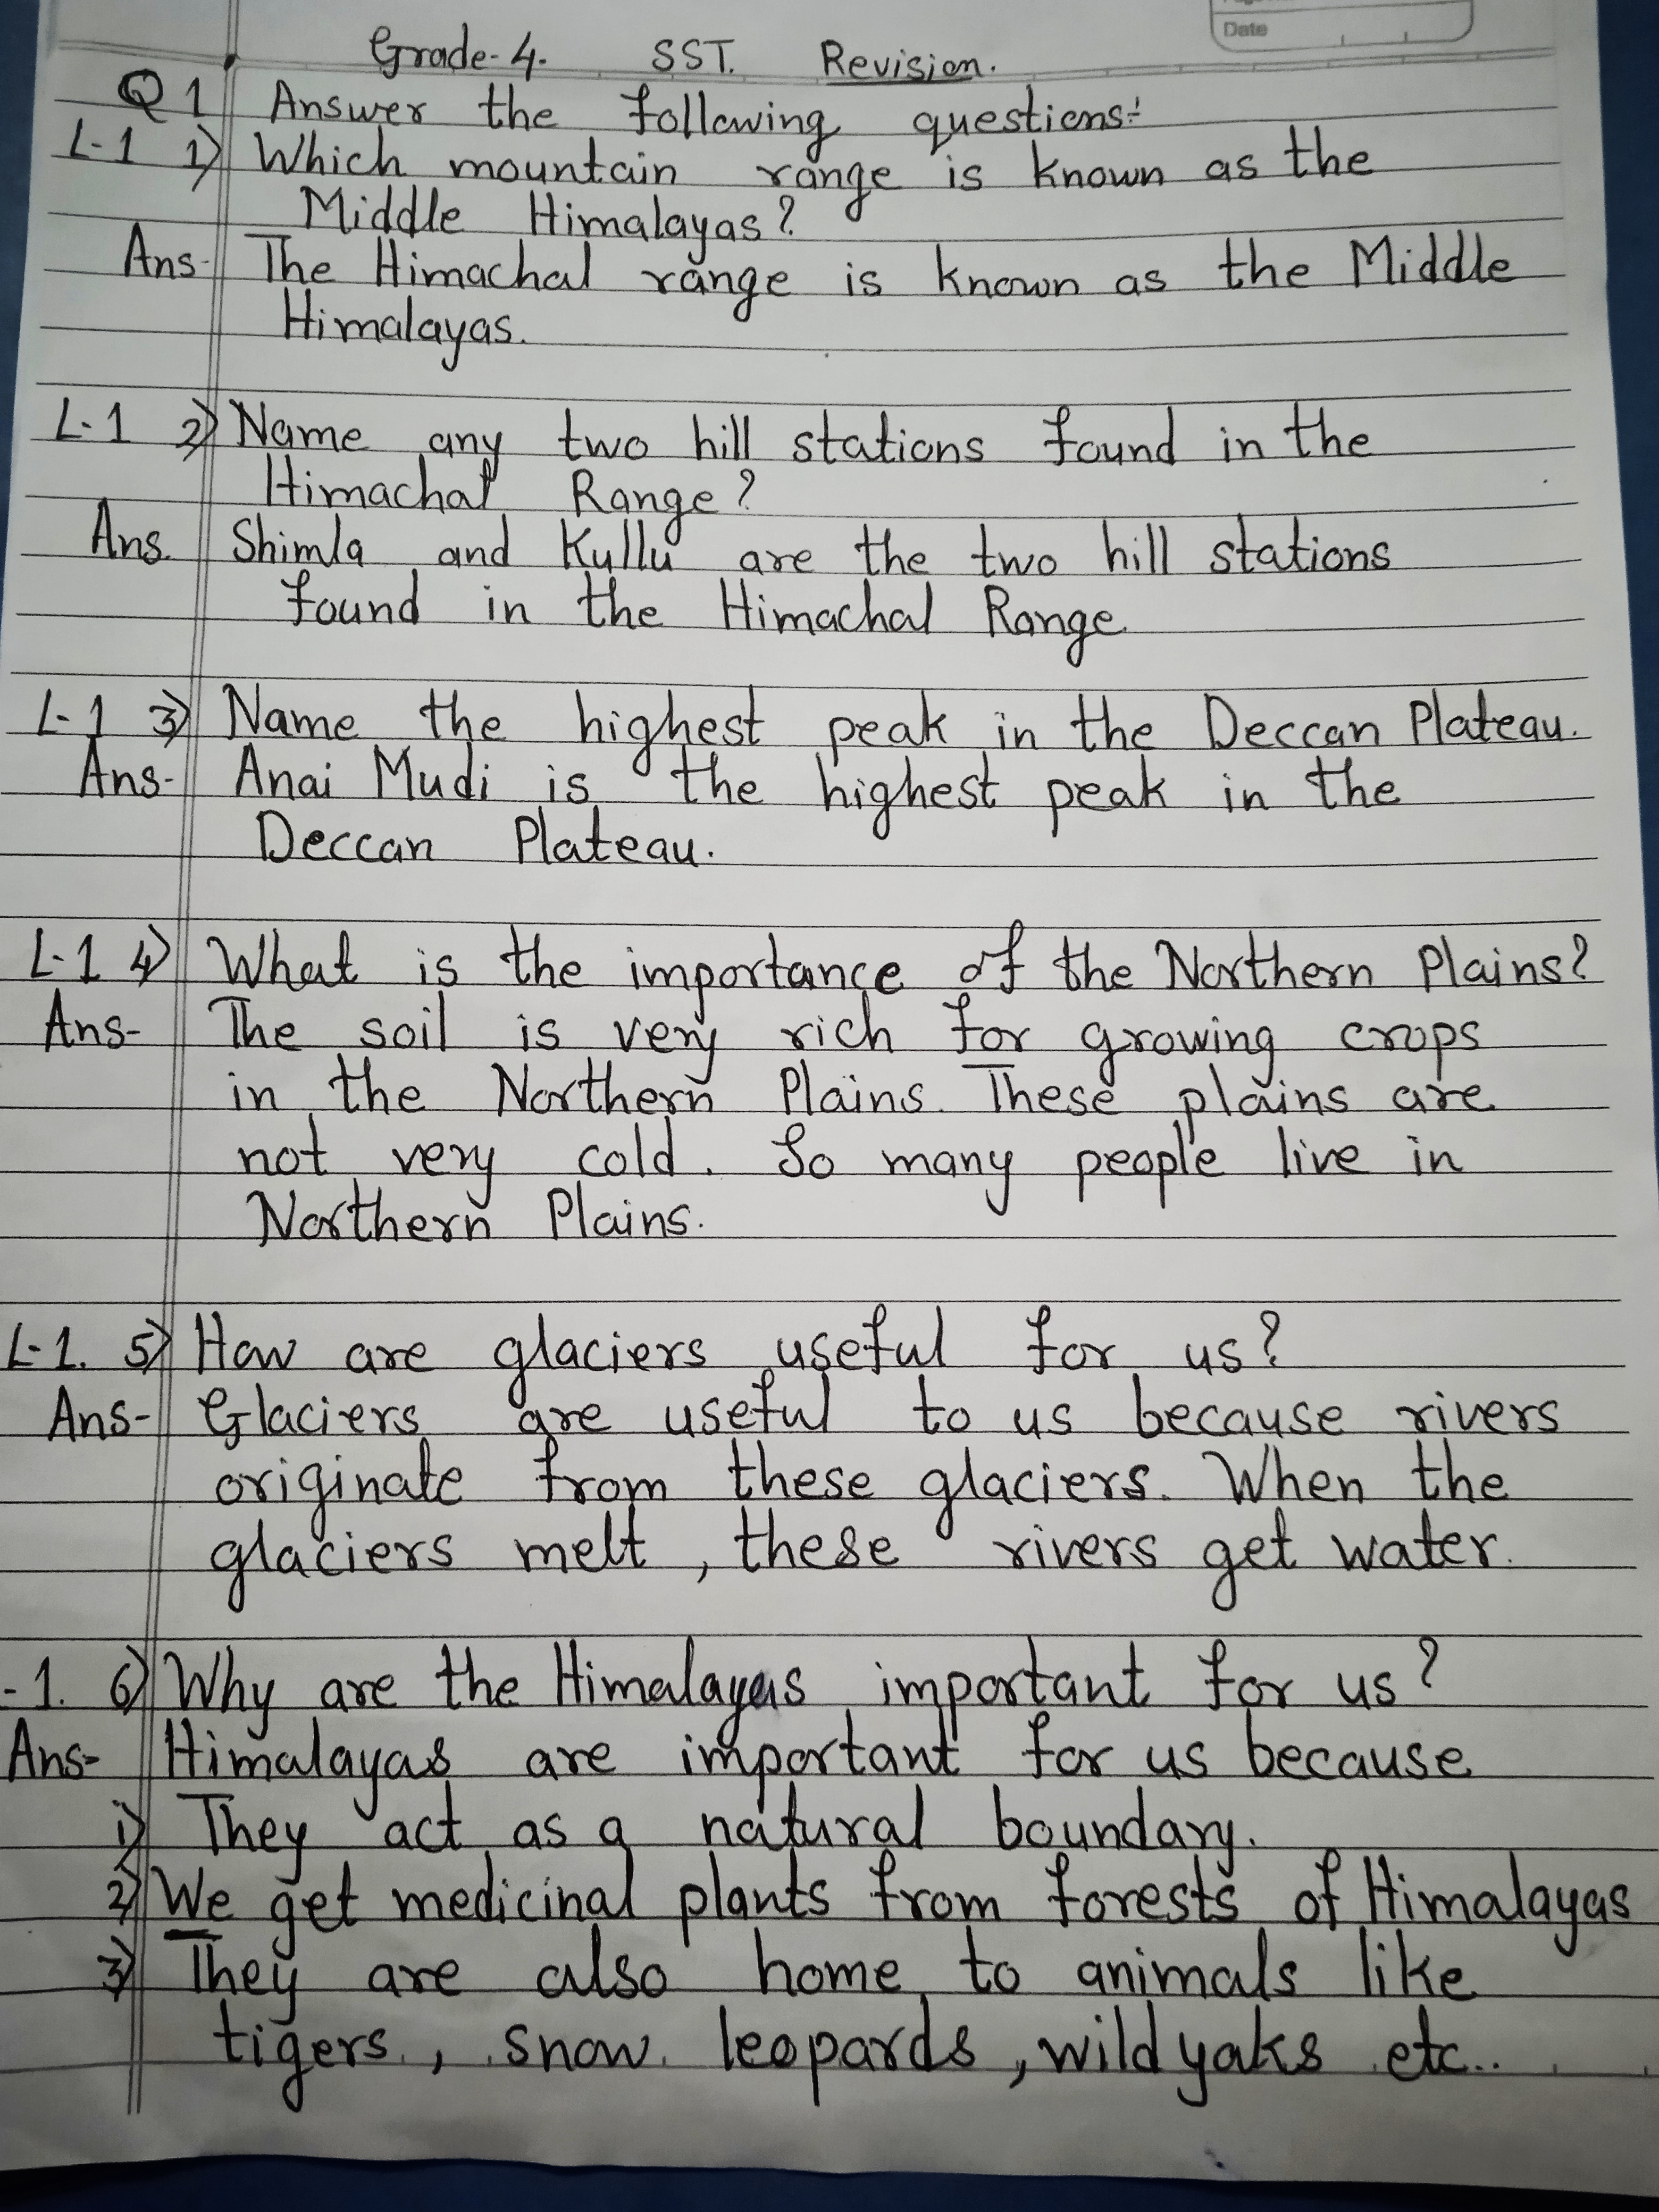 Date
Grade-4. SST. Revision.
Q1 Answer the following questions:
L-1 1) Which mountain range is known as the
Middle Himalayas?
Ans- The Himachal range is known as the Middle
Himalayas.
L-1 2) Name any two hill stations found in the
Himachal Range?
Ans. Shimla and Kullu are the two hill stations
found in the Himachal Range
L-1 3) Name the highest peak in the Deccan Plateau.
Ans- Anai Mudi is the highest peak in the
Deccan Plateau.
L-1 4) What is the importance of the Northern Plains?
Ans- The soil is very rich for growing crops
in the Northern Plains. These plains are
not very cold. So many people live in
Northern Plains.
L-1. 5) How are glaciers useful for us?
Ans- Glaciers are useful to us because rivers
originate from these glaciers. When the
glaciers melt, these rivers get water.
-1. 6) Why are the Himalayas important for us?
Ans- Himalayas are important for us because
1) They act as a natural boundary.
2) We get medicinal plants from forests of Himalayas
3) They are also home to animals like
tigers., snow leopards, wild yaks etc..